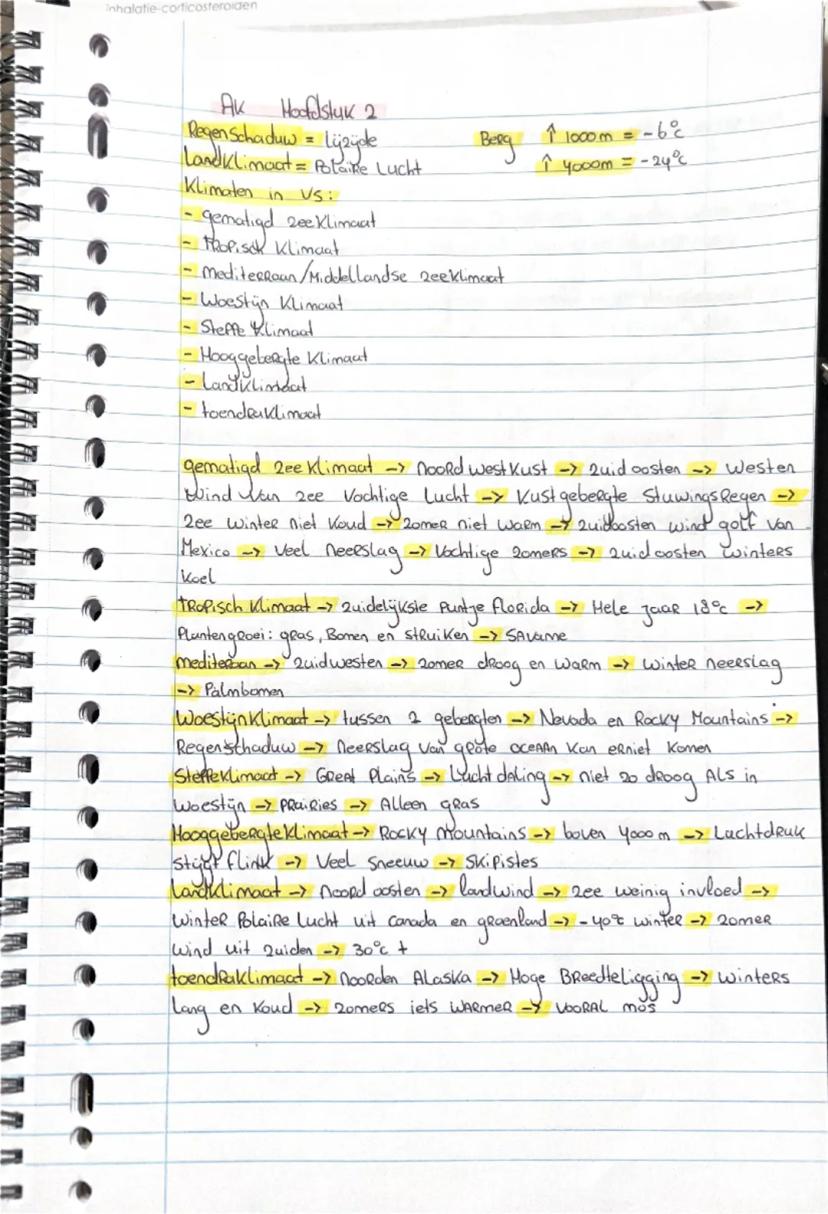 inhalatie-corticosteroiden
AK Hoofdstuk 2
Regenschaduw = Lijzijde Berg ↑ 1000m = -6°c
Landklimaat = Polaire Lucht ↑ 4000m = -24°c
Klimaten in VS:
- gematigd zeeklimaat
- tropisch klimaat
- mediterraan/Middellandse zeeklimaat
- Woestijn Klimaat
- Steppe Klimaat
- Hooggebergte Klimaat
- landklimaat
- toendraklimaat
gematigd zeeklimaat -> noordwestkust -> zuidoosten -> Westen
wind van zee vochtige lucht -> Kustgebergte Stuwingsregen ->
zee winter niet koud -> zomer niet warm -> zuidoosten wind golf van
Mexico -> Veel neerslag -> Vochtige zomers -> zuidoosten winters
koel
tropisch klimaat -> zuidelijkste puntje Florida -> Hele jaar 18°c ->
Plantengroei: gras, Bomen en struiken -> Savanne
mediterraan -> zuidwesten -> zomer droog en warm -> winter neerslag
-> Palmbomen
Woestijnklimaat -> tussen 2 gebergten -> Nevada en Rocky Mountains ->
Regenschaduw -> neerslag van grote oceaan kan erniet komen
Steppeklimaat -> Great Plains -> Lucht daling -> niet zo droog Als in
woestijn -> Prairies -> Alleen gras
Hooggebergteklimaat -> Rocky Mountains -> boven 4000 m -> Luchtdruk
stijgt flink -> Veel sneeuw -> Skipistes
Landklimaat -> noord oosten -> landwind -> zee weinig invloed ->
winter Polaire Lucht uit Canada en groenland -> -40°c winter -> zomer
wind uit zuiden -> 30°c +
toendraklimaat -> noorden Alaska -> Hoge Breedteligging -> winters
lang en koud -> zomers iets warmer -> vooral mos